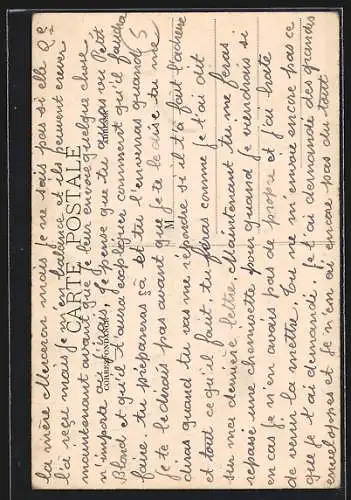 la mère Merceron mais je ne sais pas si elle
l'a reçu mais je m'en balance et ils peuvent crever
maintenant avant que je leur envoie quelque chose
n'importe
CARTE POSTALE
CORRESPONDANCE
ADRESSE
je pense que tu auras vu Petit
Bland et qu'il t'aura expliquer comment qu'il faudra
faire tu prépareras ça et tu l'enverras quand
je te le dirais pas avant que je te le dise tu me
diras quand tu vas me répondre si il t'a fait l'acheter
et tout ce qu'il faut tu feras comme je t'ai dit
sur ma dernière lettre. Maintenant tu me feras
repasse une chemisette pour quand je viendrais si
en cas je n'en avais pas de propre et j'ai hate
de venir la mettre. Tu ne m'envoie encore pas ce
que je t'ai demandé. je t'ai demandé des grandes
enveloppes et je n'en ai encore pas du tout